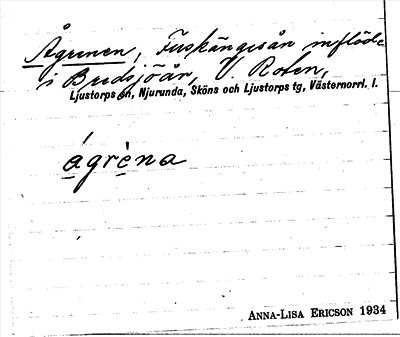 Ågrenen, Fuskängesån inflöde
i Bredsjöån, V. Roten,
Ljustorps sn, Njurunda, Sköns och Ljustorps tg, Västernorrl. l.
ágrèna
ANNA-LISA ERICSON 1934